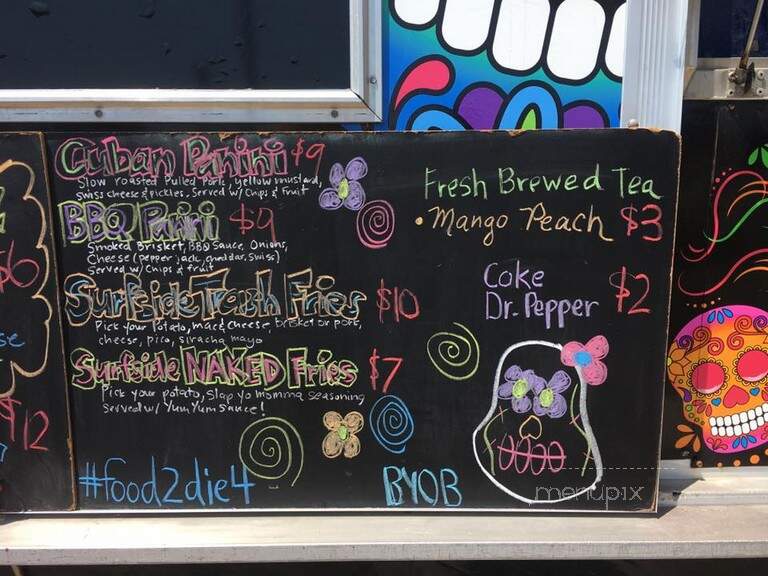 Cuban Panini $9
Slow roasted Pulled Pork, yellow mustard,
Swiss cheese & pickles, Served w/ Chips & Fruit
BBQ Panini $9
Smoked Brisket, BBQ Sauce, Onions,
Cheese (pepper jack, cheddar, swiss)
Served w/ Chips & fruit
Surfside Trash Fries $10
Pick your Potato, mac & cheese, brisket or pork,
cheese, pico, siracha mayo
Surfside NAKED Fries $7
Pick your potato, slap yo momma seasoning
Served w/ Yum Yum Sauce!
#food2die4
BYOB
Fresh Brewed Tea
• Mango Peach $3
Coke
Dr. Pepper $2
$6
$12
menupix